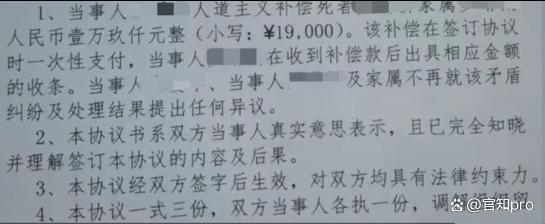 1、当事人 人道主义补偿死者 家属
人民币壹万玖仟元整（小写：¥19,000）。该补偿在签订协议
时一次性支付，当事人 在收到补偿款后出具相应金额
的收条。当事人 、当事人 及家属不再就该矛盾
纠纷及处理结果提出任何异议。
2、本协议书系双方当事人真实意思表示，且已完全知晓
并理解签订本协议的内容及后果。
3、本协议经双方签字后生效，对双方均具有法律约束力。
4、本协议一式三份，双方当事人各执一份，调
官知pro